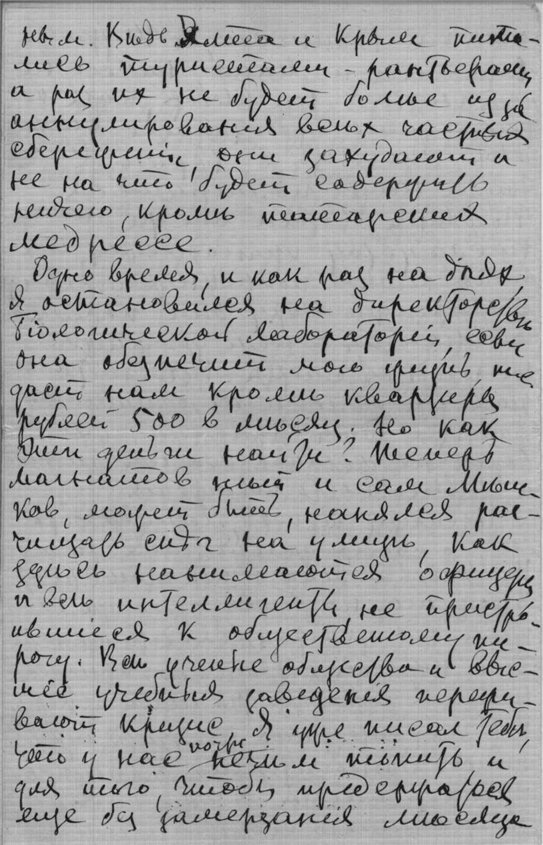 ным. Вѣдь Ялта и Крым пита-
лись туристами - рантьерами
и раз их не будет больше из за
аннулирования всѣх частных
сбережений, они захудают и
не на что будет содержать
ничего, кромѣ татарских
медрессе.
Одно время, и как раз на днях,
я остановился на директорствѣ
Біологической лабораторіи, если
она обезпечит мою жизнь, т.е.
даст нам кромѣ квартиры
рублей 500 в мѣсяц. Но как
эти деньги найти? Теперь
магнатов нѣт и сам Мѣш-
ков, может быть, нанялся рас-
чищать снѣг на улицѣ, как
здѣсь нанимаются офицеры
и всѣ интеллигенты не пристро-
ившiеся к общественному пи-
рогу. Всѣ ученые общества и выс-
шіе учебныя заведенія пережи-
вают кризис. Я уже писал тебѣ,
что у нас почти нечѣм топить и
для того, чтобы продержаться
еще без замерзанія мѣсяца